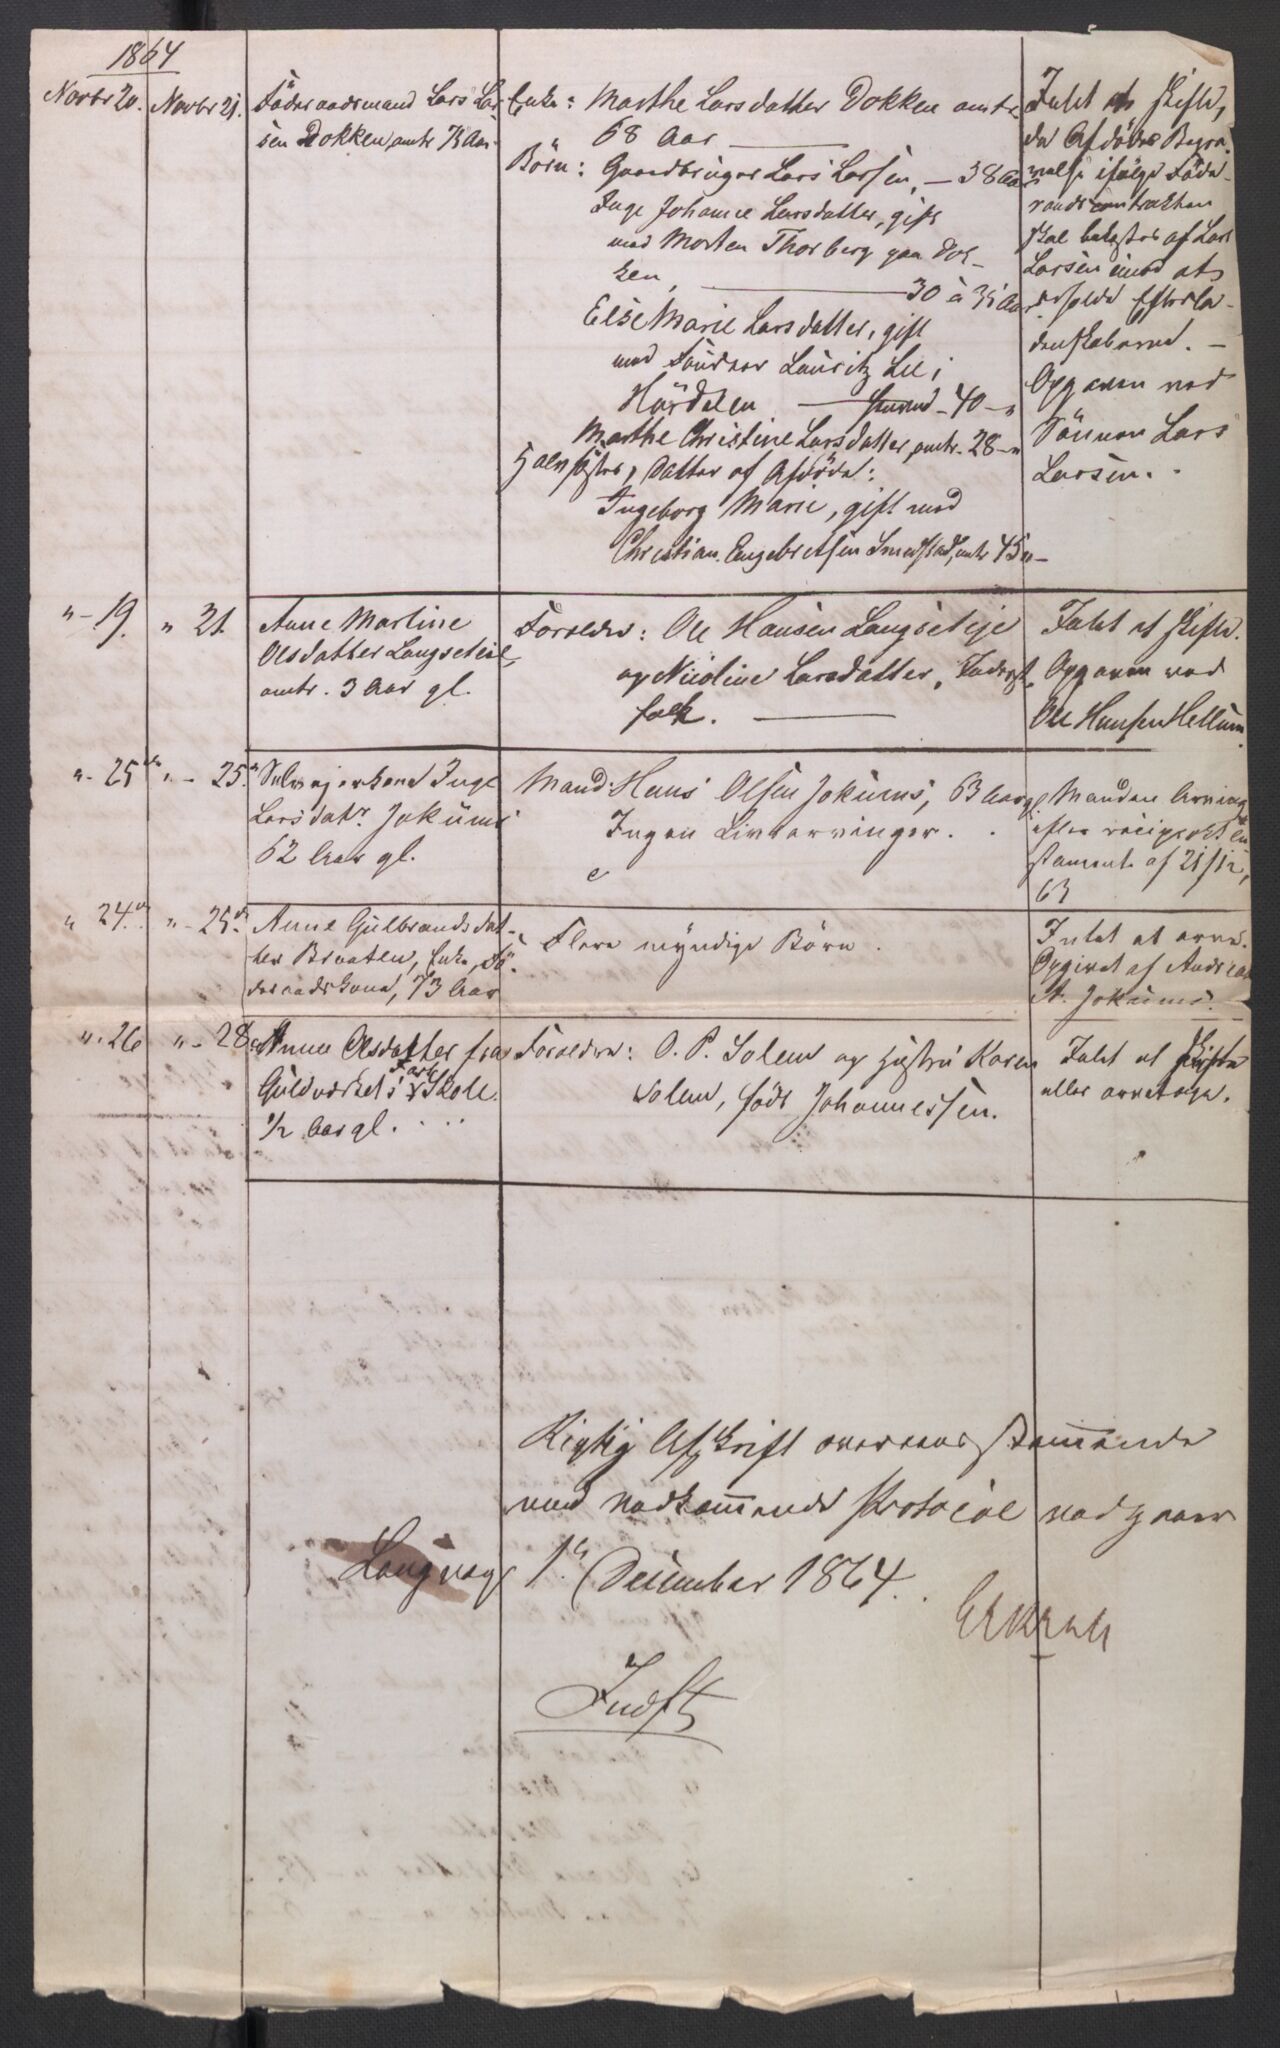 1864
Novbr 20. Novbr 21. Föderaadsmand Lars Lar
sen Dokken, omtr 73 Aar.
Enke: Marthe Larsdatter Dokken omtr
68 Aar
Börn: Gaardbruger Lars Larsen, — 38 Aar
Inge Johanne Larsdatter, gift
med Morten Thorberg paa Dok-
ken, 30 à 35 Aar
Else Marie Larsdatter, gift
med Lauritz Lie i
Hurdalen — 40 - "
Marthe Christine Larsdatter, omtr. 28 - "
Halvsöster, Datter af Afdöde:
Ingeborg Marie, gift med
Christian Engebretsen Smedstad, omtr 45 " -
Intet at skifte,
da Afdödes Begra-
velse ifölge Föde-
raadscontrakten
skal bekostes af Lars
Larsen imod at
beholde Efterla-
denskaberne. —
Opgaven ved
Sönnen Lars
Larsen.
" - 19. " 21. Anne Martine
Olsdatter Langseteie,
omtr. 3 Aar gl.
Forældre: Ole Hansen Langseteje
og Nicoline Larsdatter, Inderst
folk.
Intet at skifte.
Opgaven ved
Ole Hansen Hellum
" - 25de " - 25de Selvejerkone Inge
Larsdatr. Jokums
62 Aar gl.
Mand: Hans Olsen Jokums, 63 Aar gl.
Ingen Livsarvinger.
Manden Arving
efter reciprokt Te
stament af 21/12,
63
" 24de " - 25de Anne Gulbrandsdat-
ter Braaten, Enke, Fö-
deraadskone, 73 Aar
Flere myndige Börn.
Intet at arve.
Opgivet af Andreas
A. Jokums.
" - 26 " - 28 Anne Olsdatter fra
Guldverkets fast Skole
1/2 Aar gl.
Forældre: O. P. Solem og Hustru Karen
Solem, födt Johannessen.
Intet at skifte
eller arvetage.
Rigtig Afskrift overensstemmende
med vedkommende Protocol vedgaaer
Langvag 1ste December 1864.
Indst